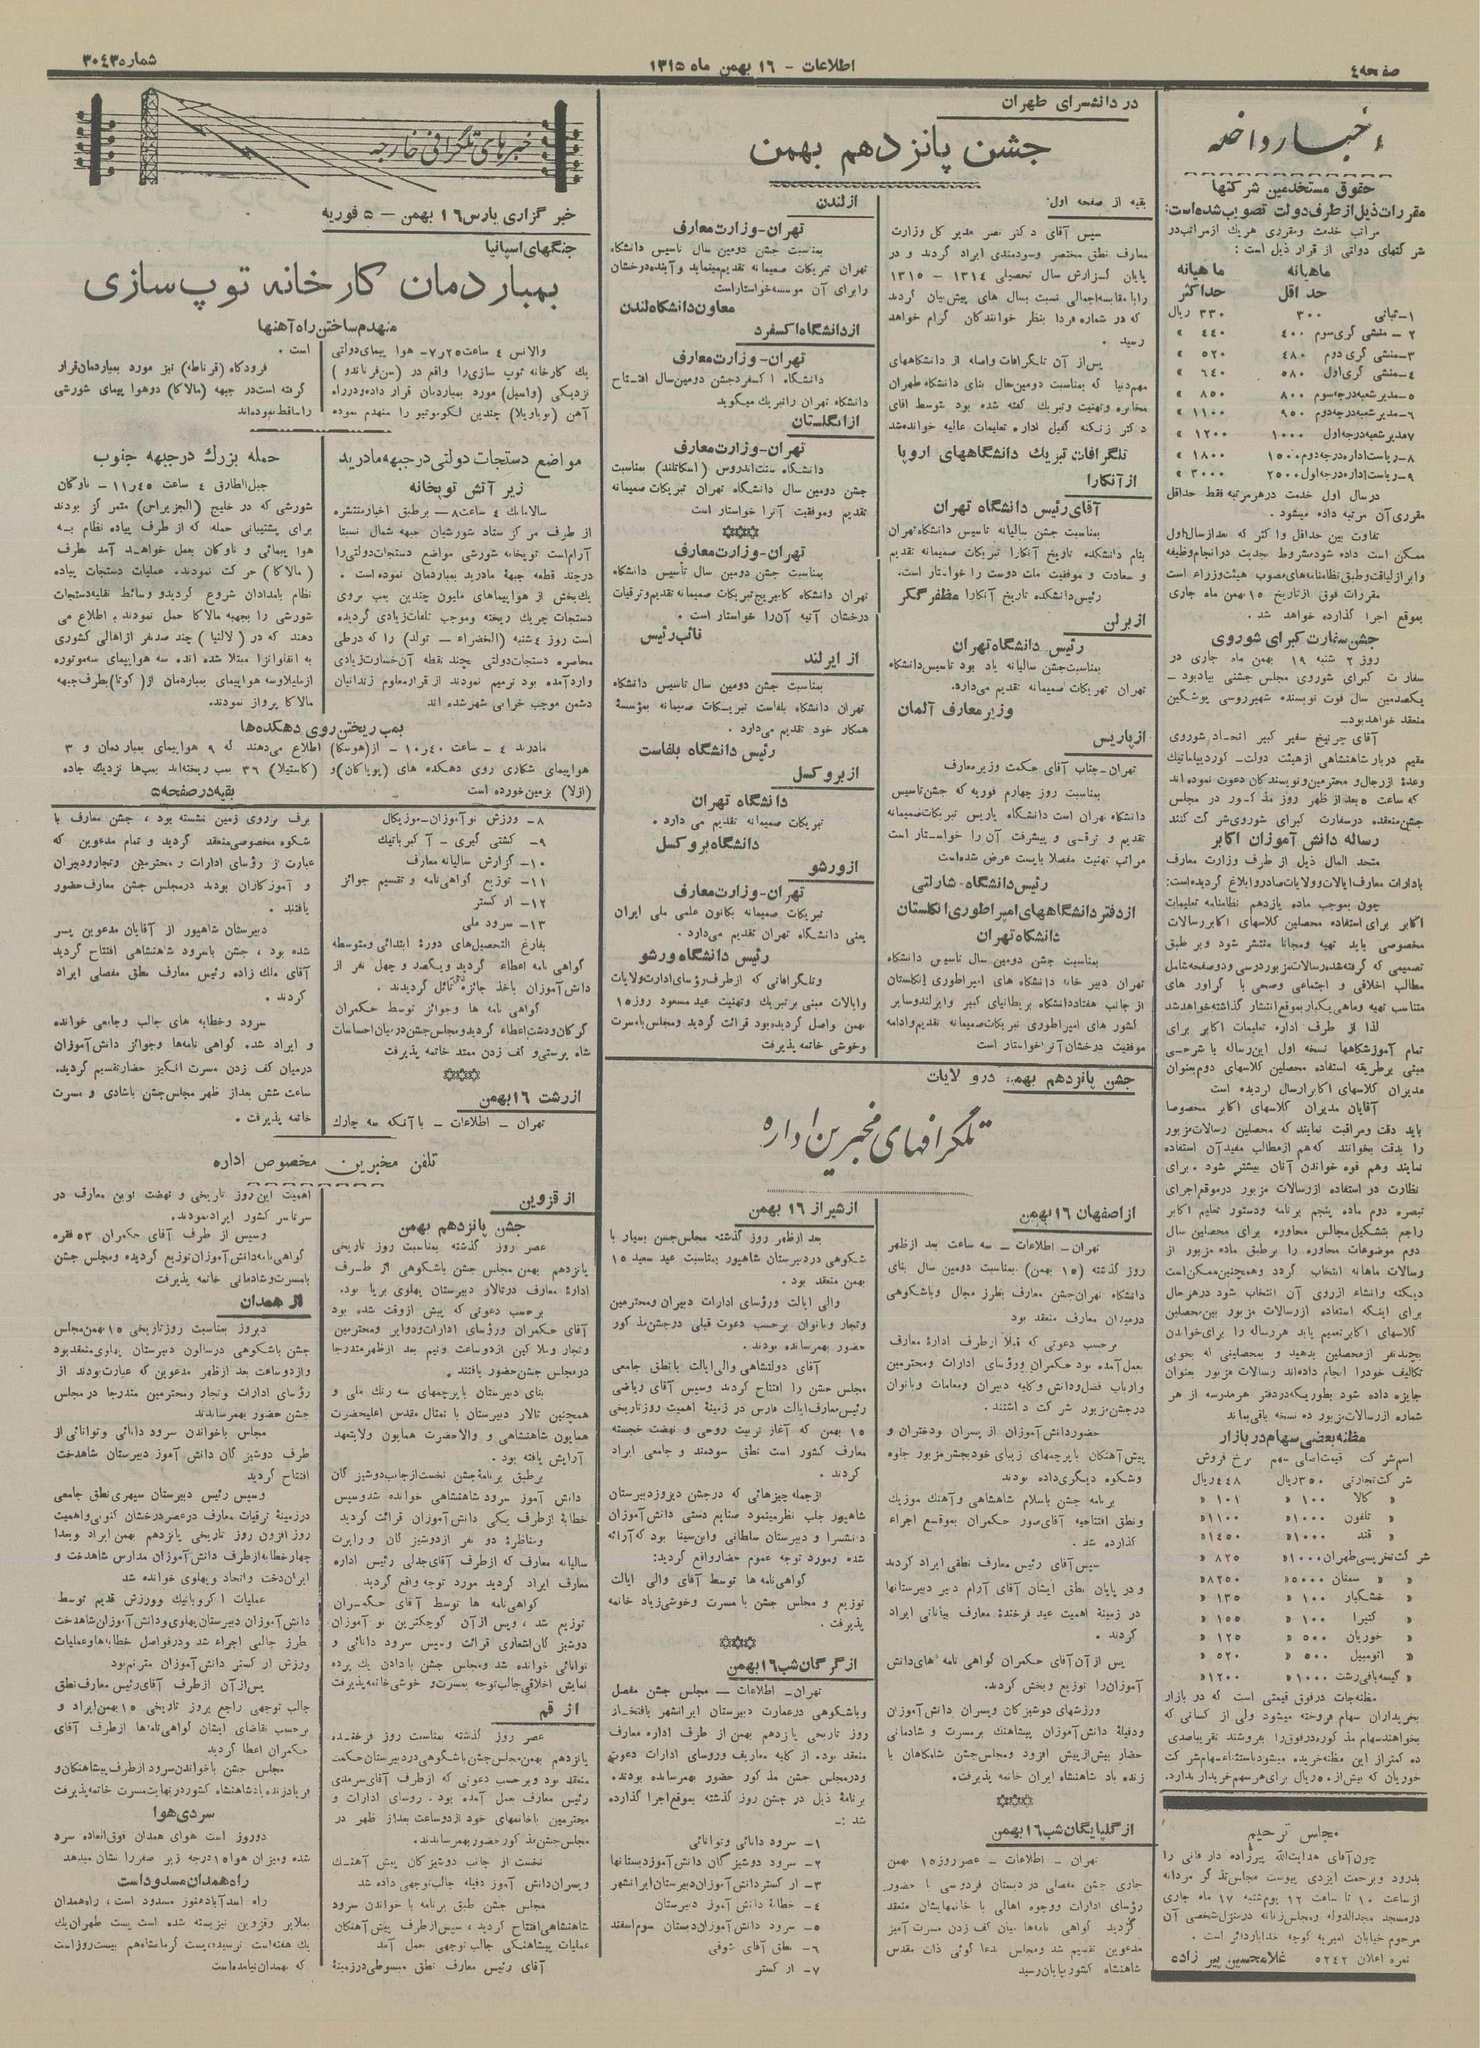 صفحه ٤
اطلاعات - ١٦ بهمن ماه ١٣١٥
شماره ٣٠٤٣
اخبار داخله
حقوق مستخدمین شرکتها
مقررات ذیل از طرف دولت تصویب شده است:
مراتب خدمت و مقرری هریک از مراتب در
شرکتهای دولتی از قرار ذیل است :
ماهیانه ماهیانه
حداقل حداکثر
١- ثباتی ٣٠٠ ٣٣٠ ریال
٢ - منشی گری سوم ٤٠٠ ٤٤٠ »
٣- منشی گری دوم ٤٨٠ ٥٢٠ »
٤- منشی گری اول ٥٨٠ ٦٤٠ »
٥- مدیر شعبه درجه سوم ٨٠٠ ٨٥٠ »
٦- مدیر شعبه درجه دوم ٩٥٠ ١١٠٠ »
٧ مدیر شعبه درجه اول ١٠٠٠ ١٢٠٠ »
٨- ریاست اداره درجه دوم ١٥٠٠ ١٨٠٠ »
٩- ریاست اداره درجه اول ٢٥٠٠ ٣٠٠٠ »
در سال اول خدمت در هر مرتبه فقط حداقل
مقرری آن مرتبه داده میشود .
تفاوت بین حداقل و اکثر که بعد از سال اول
ممکن است داده شود مشروط بجدیت در انجام وظیفه
و ابراز لیاقت و طبق نظامنامه های مصوب هیئت وزراء است
مقررات فوق از تاریخ ١٥ بهمن ماه جاری
بموقع اجرا گذارده خواهد شد .
جشن سفارت کبرای شوروی
روز ٢ شنبه ١٩ بهمن ماه جاری در
سفارت کبرای شوروی مجلس جشنی بیادبود
یکصدمین سال فوت نویسنده شهیر روسی پوشگین
منعقد خواهد بود-
آقای چرنیخ سفیر کبیر اتحاد شوروی
مقیم دربار شاهنشاهی از هیئت دولت- کوردیپلماتیک
وعدهٔ از رجال و محترمین و نویسندگان دعوت نموده اند
که ساعت ٥ بعد از ظهر روز مذکور در مجلس
جشن منعقده در سفارت کبرای شوروی شرکت کنند
رساله دانش آموزان اکابر
متحد المال ذیل از طرف وزارت معارف
بادارات معارف ایالات و ولایات صادر و ابلاغ گردیده است:
چون بموجب ماده یازدهم نظامنامه تعلیمات
اکابر برای استفاده محصلین کلاسهای اکابر رسالات
مخصوصی باید تهیه و مجانا منتشر شود و بر طبق
تصمیمی که گرفته شده رسالات مزبور در سی و دو صفحه شامل
مطالب اخلاقی و اجتماعی و صحی با گراور های
متناسب تهیه و ماهی یکبار بموقع انتشار گذاشته خواهد شد
لذا از طرف اداره تعلیمات اکابر برای
تمام آموزشگاهها نسخه اول این رساله با شرحی
مبنی بر طریقه استفاده محصلین کلاسهای دوم بعنوان
مدیران کلاسهای اکابر ارسال گردیده است
آقایان مدیران کلاسهای اکابر مخصوصا
باید دقت و مراقبت نمایند که محصلین رسالات مزبور
را بدقت بخوانند که هم از مطالب مفید آن استفاده
نمایند و هم قوه خواندن آنان بیشتر شود . برای
نظارت در استفاده از رسالات مزبور در موقع اجرای
تبصره دوم ماده پنجم برنامه و دستور تعلیم اکابر
راجع بتشکیل مجالس محاوره برای محصلین سال
دوم موضوعات محاوره را بر طبق ماده مزبور از
رسالات ماهانه انتخاب گردد و همچنین ممکن است
دیکته و انشاء از روی آن انتخاب شود در هر حال
برای اینکه استفاده از رسالات مزبور بین محصلین
کلاسهای اکابر تعمیم یابد هر رساله را برای خواندن
بچند نفر از محصلین بدهید و بمحصلینی که بخوبی
تکالیف خود را انجام داده اند رسالات مزبور بعنوان
جایزه داده شود بطوریکه در دفتر هر مدرسه از هر
شماره از رسالات مزبور ده نسخه باقی بماند
مظنه بعضی سهام در بازار
اسم شرکت قیمت اصلی سهم نرخ فروش
شرکت تجارتی ٣٥٠ ریال ٤٤٨ ریال
« کالا ١٠٠ « ١٠١ «
« تلفون ١٠٠٠ « ١١٠٠ «
« قند ١٠٠٠ « ١٤٥٠ «
شرکت نخ ریسی طهران ١٠٠٠ « ٨٢٥ «
« سمنان ٥٠٠٠ « ٨٢٥٠ «
« خشکبار ١٠٠ « ١٣٥ «
« کتیرا ١٠٠ « ١٥٥ «
« خوریان ٥٠٠ « ١٢٥ «
« اتومبیل ٥٠٠ « ٥٢٠ «
« کیسه بافی رشت ١٠٠٠ « ١٢٠٠ «
مظنه جات در فوق قیمتی است که در بازار
بخریداران سهام فروخته میشود ولی از کسانی که
بخواهند سهام مذکوره در فوق را بفروشند تقریبا صدی
ده کمتر از این مظنه خریده میشود باستثناء سهام شرکت
خوریان که بیش از ٥٠ ریال برای هر سهم خریدار ندارد.
مجلس ترحیم
چون آقای هدایت الله پیرزاده دار فانی را
بدرود و برحمت ایزدی پیوست مجلس تذکر مردانه
از ساعت ١٠ تا ساعت ١٢ یوم شنبه ١٧ ماه جاری
در مسجد مجدالدوله و مجلس زنانه در منزل شخصی آن
مرحوم خیابان امیریه کوچه خدابار دائر است .
نمره اعلان ٥٢٤٢ غلامحسین پیرزاده
در دانشسرای طهران
جشن پانزدهم بهمن
بقیه از صفحه اول:
سپس آقای دکتر نصر مدیر کل وزارت
معارف نطق مختصر و سودمندی ایراد کردند و در
پایان گزارش سال تحصیلی ١٣١٤ - ١٣١٥
را با مقایسه اجمالی نسبت بسال های پیش بیان کردند
که در شماره فردا بنظر خوانندگان گرام خواهد
رسید .
پس از آن تلگرافات واصله از دانشگاههای
مهم دنیا که بمناسبت دومین سال بنای دانشگاه طهران
مخابره و تهنیت و تبریک گفته شده بود توسط آقای
دکتر زنگنه کفیل اداره تعلیمات عالیه خوانده شد
تلگرافات تبریک دانشگاههای اروپا
از آنکارا
آقای رئیس دانشگاه تهران
بمناسبت جشن سالیانه تاسیس دانشگاه تهران
بنام دانشکده تاریخ آنکارا تبریکات صمیمانه تقدیم
و سعادت و موفقیت ملت دوست را خواستار است.
رئیس دانشکده تاریخ آنکارا مظفر گکر
از برلن
رئیس دانشگاه تهران
بمناسبت جشن سالیانه یاد بود تاسیس دانشگاه
تهران تبریکات صمیمانه تقدیم میدارد.
وزیر معارف آلمان
از پاریس
تهران- جناب آقای حکمت وزیر معارف
بمناسبت روز چهارم فوریه که جشن تاسیس
دانشگاه تهران است دانشگاه پاریس تبریکات صمیمانه
تقدیم و ترقی و پیشرفت آن را خواستار است
مراتب تهنیت مفصلا با پست عرض شده است
رئیس دانشگاه- شارلتی
از دفتر دانشگاههای امپراطوری انگلستان
دانشگاه تهران
بمناسبت جشن دومین سال تاسیس دانشگاه
تهران دبیر خانه دانشگاه های امپراطوری انگلستان
از جانب هفتاد دانشگاه بریطانیای کبیر و ایرلند و سایر
کشور های امپراطوری تبریکات صمیمانه تقدیم و ادامه
موفقیت درخشان آنرا خواستار است
از لندن
تهران- وزارت معارف
بمناسبت جشن دومین سال تاسیس دانشگاه
تهران تبریکات صمیمانه تقدیم مینماید و آینده درخشان
را برای آن موسسه خواستار است
معاون دانشگاه لندن
از دانشگاه اکسفرد
تهران- وزارت معارف
دانشگاه اکسفرد جشن دومین سال افتتاح
دانشگاه تهران را تبریک میگوید
از انگلستان
تهران- وزارت معارف
دانشگاه سنت اندروس (اسکاتلند) بمناسبت
جشن دومین سال دانشگاه تهران تبریکات صمیمانه
تقدیم و موفقیت آنرا خواستار است
تهران- وزارت معارف
بمناسبت جشن دومین سال تأسیس دانشگاه
تهران دانشگاه کامبریج تبریکات صمیمانه تقدیم و ترقیات
درخشان آتیه آن را خواستار است .
نائب رئیس
از ایرلند
بمناسبت جشن دومین سال تاسیس دانشگاه
تهران دانشگاه بلفاست تبریکات صمیمانه بمؤسسهٔ
همکار خود تقدیم می دارد .
رئیس دانشگاه بلفاست
از بروکسل
دانشگاه تهران
تبریکات صمیمانه تقدیم می دارد .
دانشگاه بروکسل
از ورشو
تهران- وزارت معارف
تبریکات صمیمانه بکانون علمی ملی ایران
یعنی دانشگاه تهران تقدیم می دارد .
رئیس دانشگاه ورشو
و تلگرافاتی که از طرف رؤسای ادارات ولایات
و ایالات مبنی بر تبریک و تهنیت عید مسعود روز ١٥
بهمن واصل گردیده بود قرائت گردید و مجلس با مسرت
و خوشی خاتمه پذیرفت
جشن پانزدهم بهمن در ولایات
تلگرافهای مخبرین اداره
از اصفهان ١٦ بهمن
تهران- اطلاعات - سه ساعت بعد از ظهر
روز گذشته (١٥ بهمن) بمناسبت دومین سال بنای
دانشگاه تهران جشن معارف بطرز مجلل و باشکوهی
در میدان معارف منعقد بود
برحسب دعوتی که قبلا از طرف ادارهٔ معارف
بعمل آمده بود حکمران و رؤسای ادارات و محترمین
و ارباب فضل و دانش و کلیه دبیران و معلمات و بانوان
در جشن مزبور شرکت داشتند .
حضور دانش آموزان از پسران و دختران و
پیش آهنگان با پرچمهای زیبای خود بجشن مزبور جلوه
و شکوه دیگری داده بودند
برنامه جشن با سلام شاهنشاهی و آهنگ موزیک
و نطق افتتاحیه آقای صور حکمران بموقع اجراء
گذارده شد .
سپس آقای رئیس معارف نطقی ایراد کردند
و در پایان نطق ایشان آقای آرام دبیر دبیرستانها
در زمینهٔ اهمیت عید فرخندهٔ معارف بیاناتی ایراد
کردند .
پس از آن آقای حکمران گواهی نامه های دانش
آموزان را توزیع و پخش کردند.
ورزشهای دوشیزگان و پسران دانش آموزان
و دفیلهٔ دانش آموزان پیشاهنگ بر مسرت و شادمانی
حضار بیش از پیش افزود و مجلس جشن شامگاهان با
زنده باد شاهنشاه ایران خاتمه پذیرفت.
از گلپایگان شب ١٦ بهمن
تهران - اطلاعات - عصر روز ١٥ بهمن
جاری جشن مفصلی در دبستان فردوسی با حضور
رؤسای ادارات و وجوه اهالی با خانمهایشان منعقد
گردید گواهی نامه ها میان کف زدن مسرت آمیز
مدعوین تقسیم شد و مجلس بدعا گوئی ذات مقدس
شاهنشاه کشور بپایان رسید
از شیراز ١٦ بهمن
بعد از ظهر روز گذشته مجلس جشن بسیار با
شکوهی در دبیرستان شاهپور بمناسبت عید سعید ١٥
بهمن منعقد بود .
والی ایالت و رؤسای ادارات دبیران و محترمین
و تجار و بانوان برحسب دعوت قبلی در جشن مذکور
حضور بهمرسانده بودند.
آقای دولتشاهی والی ایالت با نطق جامعی
مجلس جشن را افتتاح کردند و سپس آقای ریاضی
رئیس معارف ایالت فارس در زمینهٔ اهمیت روز تاریخی
١٥ بهمن که آغاز تربیت روحی و نهضت خجسته
معارف کشور است نطق سودمند و جامعی ایراد
کردند .
از جمله چیزهائی که در جشن دیروز دبیرستان
شاهپور جلب نظر مینمود صنایع دستی دانش آموزان
دانشسرا و دبیرستان سلطانی و ابن سینا بود که آرائه
شده و مورد توجه عموم حضار واقع گردید:
گواهی نامه ها توسط آقای والی ایالت
توزیع و مجلس جشن با مسرت و خوشی زیاد خاتمه
پذیرفت.
از گرگان شب ١٦ بهمن
تهران- اطلاعات - مجلس جشن مفصل
و باشکوهی در عمارت دبیرستان ایرانشهر بافتخار
روز تاریخی پانزدهم بهمن از طرف اداره معارف
منعقد بوده از کلیه معاریف و رؤسای ادارات دعوت
و در مجلس جشن مذکور حضور بهمرسانده بودند.
برنامهٔ ذیل در جشن روز گذشته بموقع اجرا گذارده
شد :-
١- سرود دانائی و توانائی
٢- سرود دوشیزگان دانش آموز دبستانها
٣- ارکستر دانش آموزان دبیرستان ایرانشهر
٤- خطابهٔ دانش آموز دبیرستان
٥- سرود دانش آموزان دبستان سوم اسفند
٦- نطق آقای شوقی
٧- ارکستر
خبرهای تلگرافی خارجه
خبرگزاری پارس ١٦ بهمن - ٥ فوریه
جنگهای اسپانیا
بمباردمان کارخانه توپ سازی
منهدم ساختن راه آهنها
والانس ٤ ساعت ٧ر٢٥- هوا پیمای دولتی
یک کارخانه توپ سازی را واقع در (سن فرناندو)
نزدیکی (واسیل) مورد بمباردمان قرار داده و در راه
آهن (بوباویلا) چندین لکوموتیو را منهدم نموده
است .
فرودگاه (قرناطه) نیز مورد بمباردمان قرار
گرفته است در جبهه (مالاکا) دو هوا پیمای شورشی
را ساقط نموده اند
مواضع دستجات دولتی در جبهه مادرید
زیر آتش توپخانه
سالامانک ٤ ساعت ٨- بر طبق اخبار منتشره
از طرف مرکز ستاد شورشیان جبهه شمال نسبتا
آرام است توپخانه شورشی مواضع دستجات دولتی را
در چند قطعه جبههٔ مادرید بمباردمان نموده است .
یک بخش از هواپیماهای ملیون چندین بمب بروی
دستجات چریک ریخته و موجب تلفات زیادی گردیده
است روز ٤ شنبه (الخضراء - تولد) را که در طی
محاصره دستجات دولتی چند نقطه آن خسارت زیادی
وارد آمده بود ترمیم نمودند از قرار معلوم زندانیان
دشمن موجب خرابی شهر شده اند
حمله بزرگ در جبهه جنوب
جبل الطارق ٤ ساعت ١١ر٤٥ - ناوگان
شورشی که در خلیج (الجزیراس) متمرکز بودند
برای پشتیبانی حمله که از طرف پیاده نظام به
هوا پیمائی و ناوگان بعمل خواهد آمد بطرف
(مالاکا) حرکت نمودند. عملیات دستجات پیاده
نظام بامدادان شروع گردید و وسائط نقلیه دستجات
شورشی را بجبهه مالاکا حمل نمودند و اطلاع می
دهند که در (لالنیا) چند صد نفر از اهالی کشوری
به انفلوانزا مبتلا شده اند سه هواپیمای سه موتوره
از ملیلا و سه هواپیمای بمباردمان از (کوتا) بطرف جبهه
مالاکا پرواز نمودند.
بمب ریختن روی دهکده ها
مادرید ٤ - ساعت ١٠ر٤٠ - از (هوسکا) اطلاع می دهند که ٩ هواپیمای بمباردمان و ٣
هواپیمای شکاری روی دهکده های (پویاکان) و (کاستیلا) ٣٦ بمب ریخته اند بمب ها نزدیک جاده
(ازلا) بزمین خورده است
بقیه در صفحه ٥
٨- ورزش نوآموزان- موزیکال
٩- کشتی گیری - آکروباتیک
١٠- گزارش سالیانه معارف
١١- توزیع گواهی نامه و تقسیم جوائز
١٢- ارکستر
١٣- سرود ملی
بفارغ التحصیل های دورهٔ ابتدائی و متوسطه
گواهی نامه اعطاء گردید و یکصد و چهل نفر از
دانش آموزان باخذ جائزه نائل گردیدند .
گواهی نامه ها و جوائز توسط حکمران
گرگان و دشت اعطاء گردید و مجلس جشن در میان احساسات
شاه پرستی و کف زدن ممتد خاتمه پذیرفت
از رشت ١٦ بهمن
تهران - اطلاعات - با آنکه سه چارک
برف بر روی زمین نشسته بود ، جشن معارف با
شکوه مخصوصی منعقد گردید و تمام مدعوین که
عبارت از رؤسای ادارات و محترمین و تجار و دبیران
و آموزگاران بودند در مجلس جشن معارف حضور
یافتند .
دبیرستان شاهپور از آقایان مدعوین پر
شده بود ، جشن با سرود شاهنشاهی افتتاح گردید
آقای ملک زاده رئیس معارف نطق مفصلی ایراد
کردند .
سرود و خطابه های جالب و جامعی خوانده
و ایراد شد. گواهی نامه ها و جوائز دانش آموزان
در میان کف زدن مسرت انگیز حضار تقسیم گردید.
ساعت شش بعد از ظهر مجلس جشن با شادی و مسرت
خاتمه پذیرفت .
تلفن مخبرین مخصوص اداره
از قزوین
جشن پانزدهم بهمن
عصر روز گذشته بمناسبت روز تاریخی
پانزدهم بهمن مجلس جشن باشکوهی از طرف
ادارهٔ معارف در تالار دبیرستان پهلوی برپا بود.
بر حسب دعوتی که پیش از وقت شده بود
آقای حکمران و رؤسای ادارات و دوایر و محترمین
و تجار و ملاکین از دو ساعت و نیم بعد از ظهر متدرجا
در مجلس جشن حضور یافتند.
بنای دبیرستان با پرچمهای سه رنگ ملی و
همچنین تالار دبیرستان با تمثال مقدس اعلیحضرت
همایون شاهنشاهی و والاحضرت همایون ولایتعهد
آرایش یافته بود .
بر طبق برنامهٔ جشن نخست از جانب دوشیزگان
دانش آموز سرود شاهنشاهی خوانده شد و سپس
خطابهٔ از طرف یکی دانش آموزان قرائت گردید
و مناظرهٔ دو نفر از دوشیزگان و راپرت
سالیانه معارف که از طرف آقای جدلی رئیس اداره
معارف ایراد گردید مورد توجه واقع گردید
گواهی نامه ها توسط آقای حکمران
توزیع شد ، و پس از آن کوچکترین نو آموزان
دوشیزگان اشعاری قرائت و سپس سرود دانائی و
توانائی خوانده شد و مجلس جشن با دادن یک پرده
نمایش اخلاقی جالب توجه بمسرت و خوشی خاتمه پذیرفت
از قم
عصر روز گذشته بمناسبت روز فرخنده
پانزدهم بهمن مجلس جشن باشکوهی در دبیرستان حکمت
منعقد بود و برحسب دعوتی که از طرف آقای سرمدی
رئیس معارف بعمل آمده بود. رؤسای ادارات و
محترمین با خانمهای خود از دو ساعت بعد از ظهر در
مجلس جشن مذکور حضور بهمرساندند.
نخست از جانب دوشیزگان پیش آهنگ
و پسران دانش آموز دفیله جالب توجهی داده شد
مجلس جشن طبق برنامه با خواندن سرود
شاهنشاهی افتتاح گردید ، سپس از طرف پیش آهنگان
عملیات پیشاهنگی جالب توجهی بعمل آمد
آقای رئیس معارف نطق مبسوطی در زمینهٔ
اهمیت این روز تاریخی و نهضت نوین معارف در
سرتاسر کشور ایراد نمودند.
و سپس از طرف آقای حکمران ٥٣ فقره
گواهی نامه دانش آموزان توزیع گردیده و مجلس جشن
با مسرت و شادمانی خاتمه پذیرفت
از همدان
دیروز بمناسبت روز تاریخی ١٥ بهمن مجلس
جشن باشکوهی در سالون دبیرستان پهلوی منعقد بود
و از دو ساعت بعد از ظهر مدعوین که عبارت بودند از
رؤسای ادارات و تجار و محترمین متدرجا در مجلس
جشن حضور بهمرساندند
مجلس با خواندن سرود دانائی و توانائی از
طرف دوشیزگان دانش آموز دبیرستان شاهدخت
افتتاح گردید
و سپس رئیس دبیرستان سپهری نطق جامعی
در زمینهٔ ترقیات معارف در عصر درخشان کنونی و اهمیت
روز افزون روز تاریخی پانزدهم بهمن ایراد و بعدا
چهار خطابه از طرف دانش آموزان مدارس شاهدخت و
ایران دخت و اتحاد و پهلوی خوانده شد
عملیات اکروباتیک و ورزش قدیم توسط
دانش آموزان دبیرستان پهلوی و دانش آموزان شاهدخت
طرز جالبی اجراء شد و در فواصل خطابه ها و عملیات
ورزش ارکستر دانش آموزان مترنم بود
پس از آن از طرف آقای رئیس معارف نطق
جالب توجهی راجع بروز تاریخی ١٥ بهمن ایراد و
برحسب تقاضای ایشان گواهی نامه ها از طرف آقای
حکمران اعطا گردید
مجلس جشن با خواندن سرود از طرف پیشاهنگان و
فریاد زنده باد شاهنشاه کشور در نهایت مسرت خاتمه پذیرفت
سردی هوا
دو روز است هوای همدان فوق العاده سرد
شده و میزان هوا ١٥ درجه زیر صفر را نشان میدهد
راه همدان مسدود است
راه اسدآباد هنوز مسدود است ، راه همدان
بملایر و قزوین نیز بسته شده است پست طهران یک
یک هفته است نرسیده پست کرمانشاه هم بیست روز است
که بهمدان نیامده است